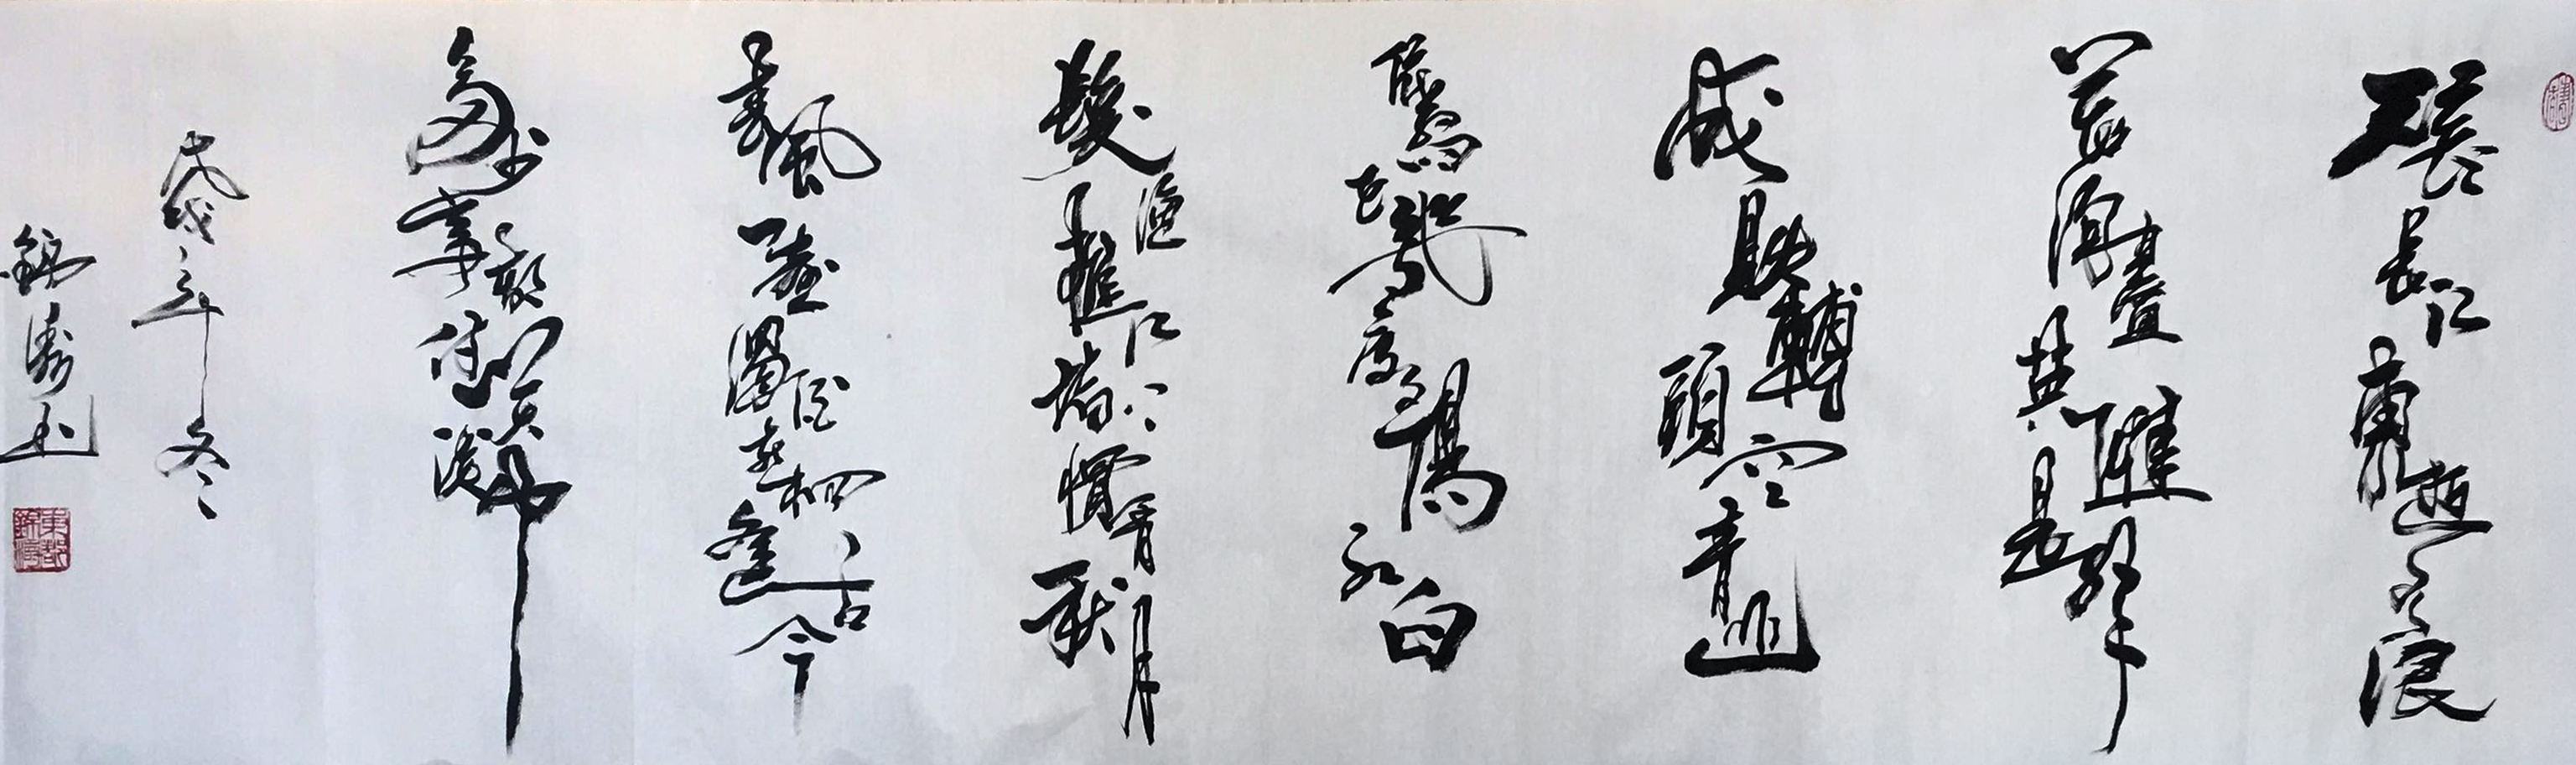 滾滾長江東逝水浪
花淘盡英雄是非
成敗轉頭空青山依
舊在幾度夕陽紅白
髮漁樵江渚上慣看秋月
春風一壺濁酒喜相逢古今
多少事都付笑談中
戊戌年冬
錦濤書